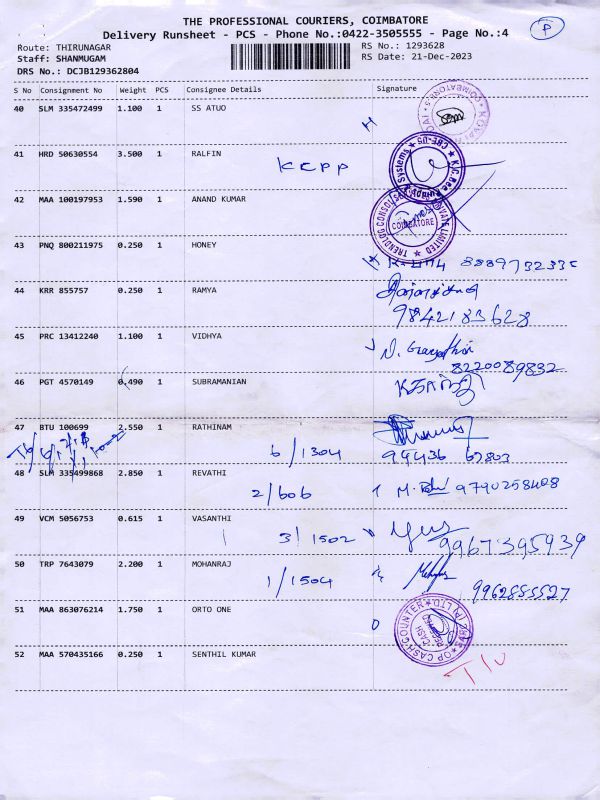 THE PROFESSIONAL COURIERS, COIMBATORE
Delivery Runsheet - PCS - Phone No.:0422-3505555 - Page No.:4
P
Route: THIRUNAGAR
RS No.: 1293628
Staff: SHANMUGAM
RS Date: 21-Dec-2023
DRS No.: DCJB129362804
S No Consignment No Weight PCS Consignee Details Signature
40 SLM 335472499 1.100 1 SS ATUO
41 HRD 50630554 3.500 1 RALFIN
KCPP
42 MAA 100197953 1.590 1 ANAND KUMAR
COIMBATORE
43 PNQ 800211975 0.250 1 HONEY
44 KRR 855757 0.250 1 RAMYA
9842183628
45 PRC 13412240 1.100 1 VIDHYA
8220089832
46 PGT 4570149 0.490 1 SUBRAMANIAN
47 BTU 100699 2.550 1 RATHINAM
6/1304 94436 62803
48 SLM 335499868 2.850 1 REVATHI
2/606 9790258408
49 VCM 5056753 0.615 1 VASANTHI
3/1502 9967395939
50 TRP 7643079 2.200 1 MOHANRAJ
1/1504 9962855527
51 MAA 863076214 1.750 1 ORTO ONE
OP CASH COUNTER
52 MAA 570435166 0.250 1 SENTHIL KUMAR